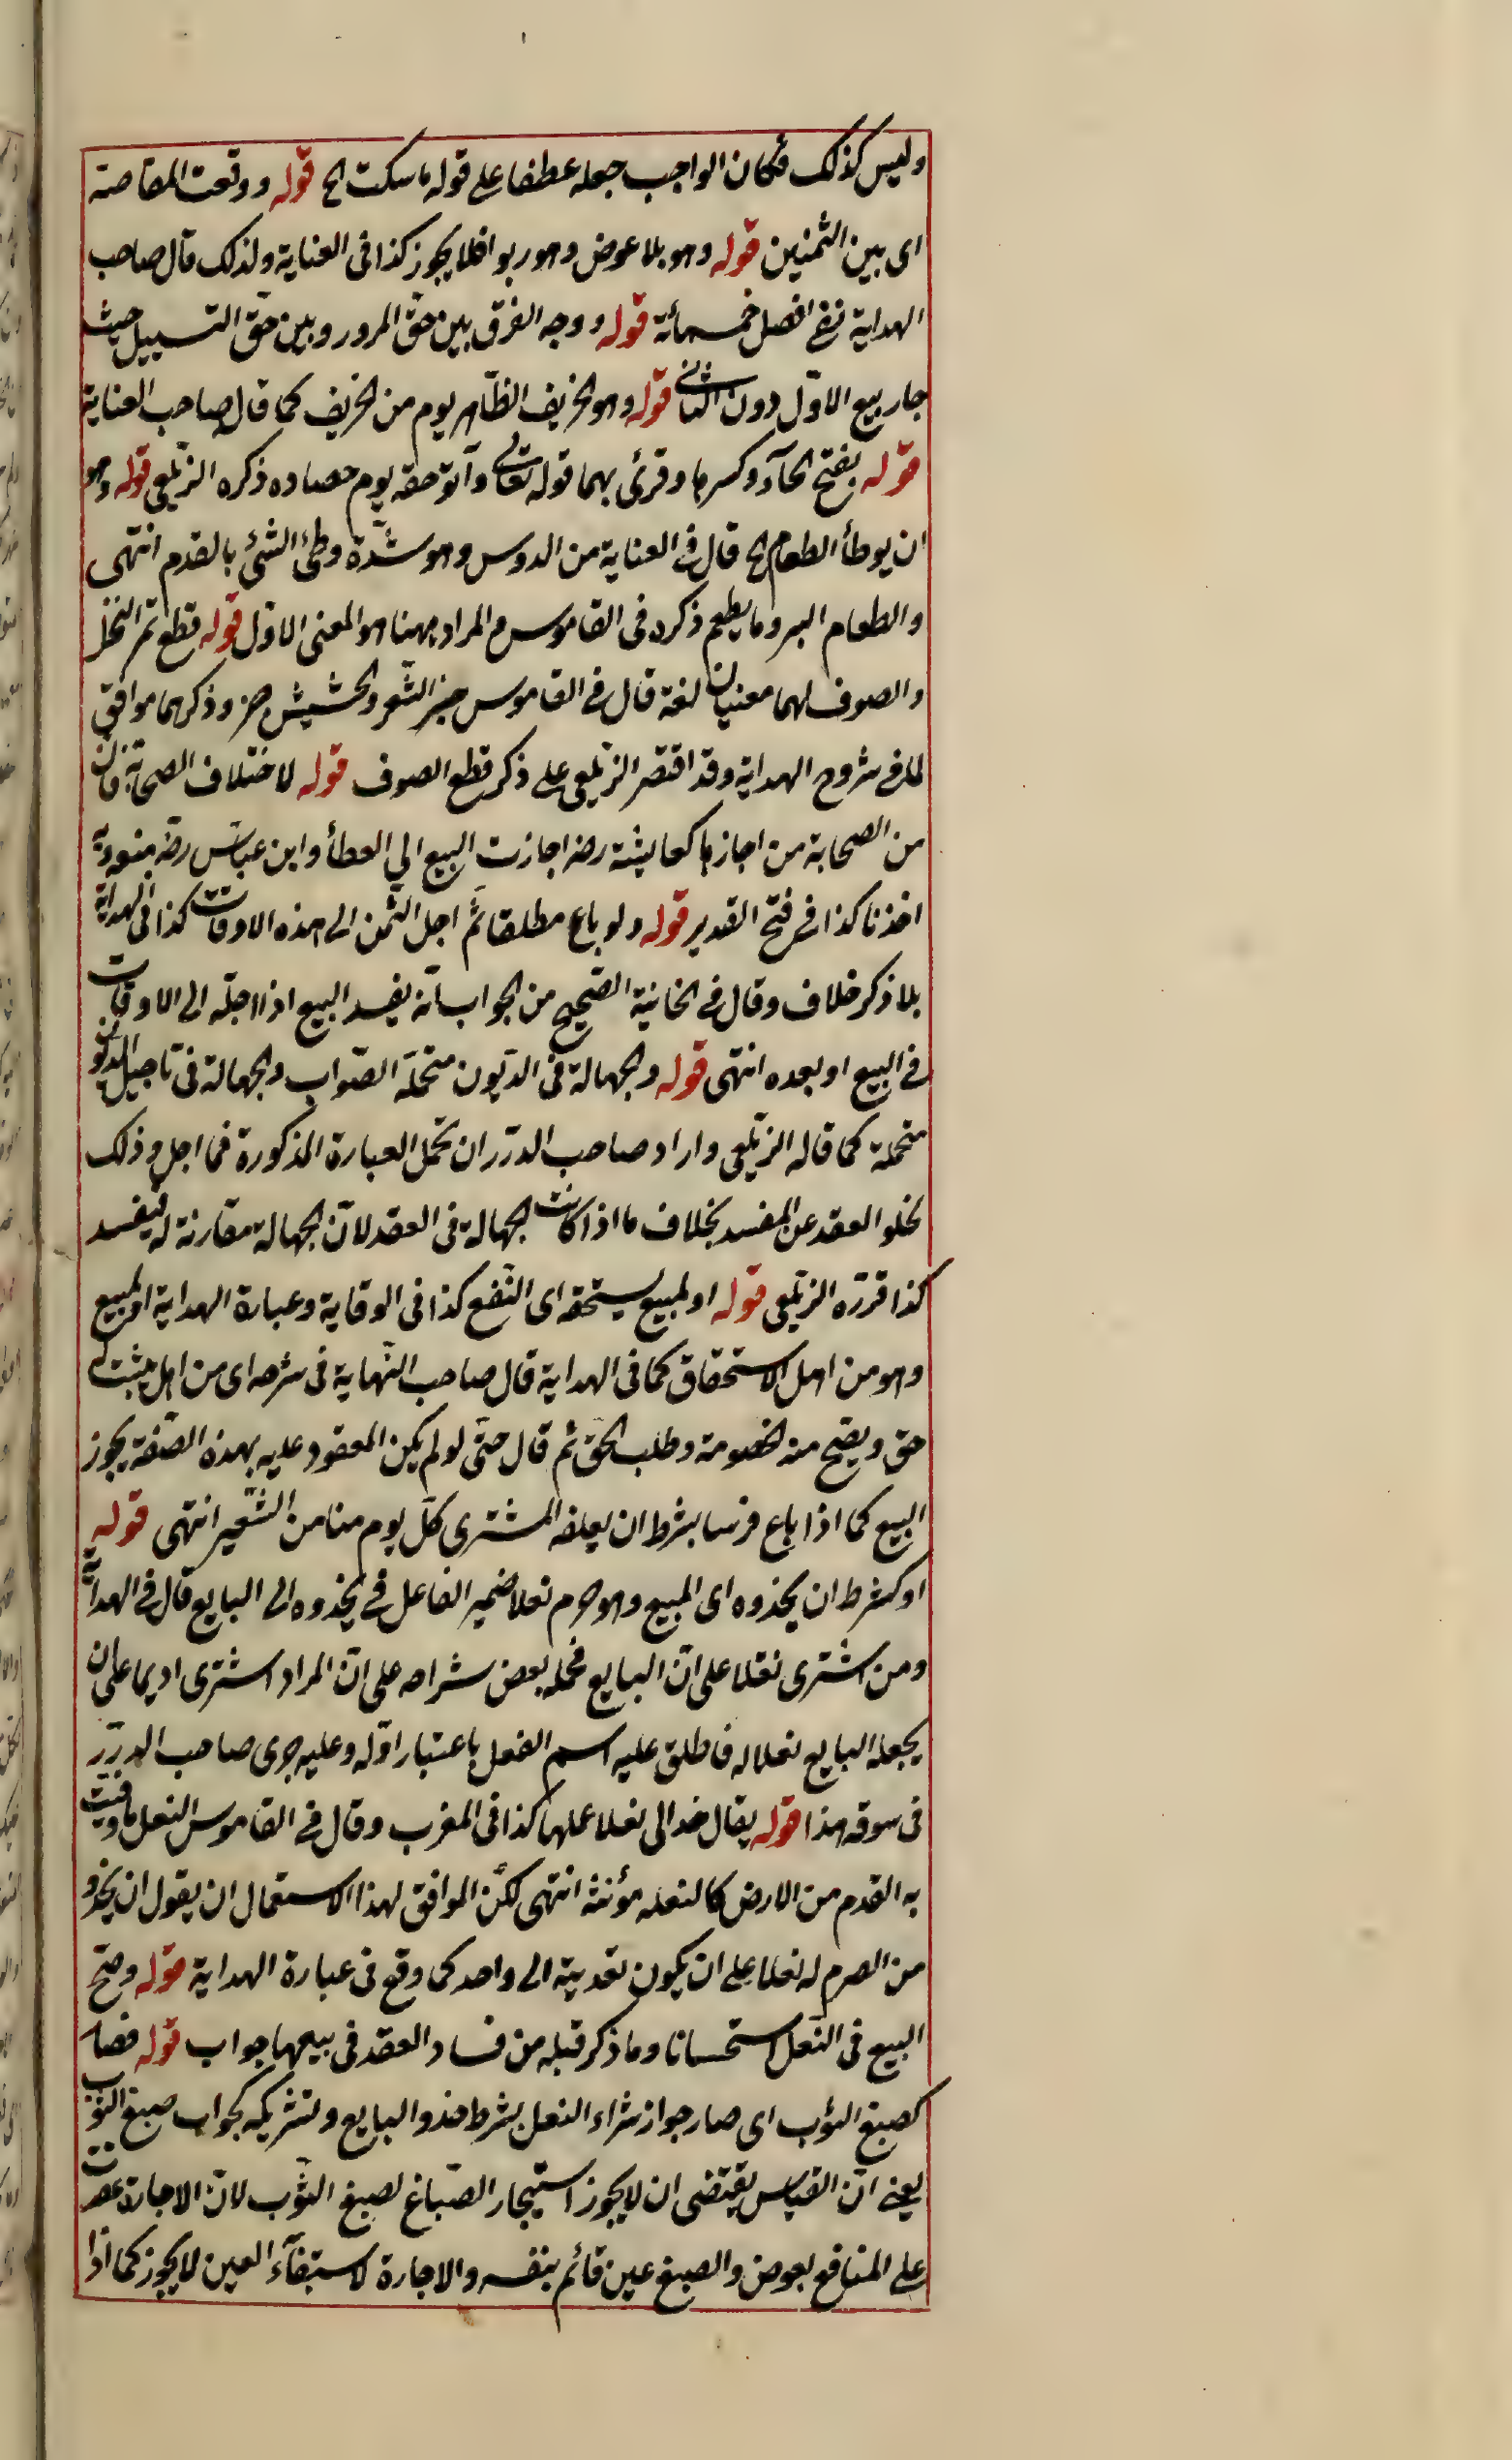 وليس كذلك فكان الواجب جعله عطفا على قوله ما سكت الخ قوله ووقعت المقاصة
اى بين الثمنين قوله وهو بلا عوض وهو ربوا فلا يجوز كذا فى العناية ولذلك قال صاحب
الهداية نفى افصل خمسمائة قوله ووجه الفرق بين حق المرور وبين حق التسييل حيث
جاز بيع الاول دون الثانى قوله وهو الخريف الظاهر يوم من الخريف كما قال صاحب العناية
قوله بفتح الحآء وكسرها وقرئ بهما قوله تعالى وآتوا حقه يوم حصاده ذكره الزيلعى قوله وهو
ان يوطأ الطعام الخ قال فى العناية من الدوس وهو شدة وطئ الشئ بالقدم انتهى
والطعام البر وما يطعم ذكره فى القاموس والمراد ههنا هو المعنى الاول قوله قطع ثمر النخل
والصوف لهما معنيان لغة قال فى القاموس جز الشعر والحشيش جز وذكرهما موافق
لما فى شروح الهداية وقد اقتصر الزيلعى على ذكر قطع الصوف قوله لاختلاف الصحابة فان
من الصحابة من اجازها كعايشة رضه اجازت البيع الى العطأ وابن عباس رضه منعه وبه
اخذنا كذا فى فتح القدير قوله ولو باع مطلقا ثم اجل الثمن الى هذه الاوقات كذا فى الهداية
بلا ذكر خلاف وقال فى الخانية الصحيح من الجواب انه يفسد البيع اذا اجله الى الاوقات
فى البيع او بعده انتهى قوله والجهالة فى الديون متحملة الصواب والجهالة فى تاجيل الديون
متحملة كما قاله الزيلعى واراد صاحب الدرر ان تحمل العبارة المذكورة فما اجل وذلك
لخلو العقد عن المفسد بخلاف ما اذا كانت الجهالة فى العقد لان الجهالة مقارنة له فيفسد
كذا قرره الزيلعى قوله او لمبيع يستحقه اى النفع كذا فى الوقاية وعبارة الهداية او للمبيع
وهو من اهل الاستحقاق كما فى الهداية قال صاحب النهاية فى شرحه اى من اهل يثبت له
حق ويصح منه الخصومة وطلب الحق ثم قال حتى لو لم يكن المعقود عليه بهذه الصفة يجوز
البيع كما اذا باع فرسا بشرط ان يعلفه المشترى كل يوم منا من الشعير انتهى قوله
او كشرط ان يحذوه اى المبيع وهو صرم نعلا ضمير الفاعل فى يحذوه الى البايع قال فى الهداية
ومن اشترى نعلا على ان البايع فحمله بعض شراحه على ان المراد اشترى اديما على ان
يجعله البايع نعلا له فاطلق عليه اسم الفعل باعتبار اوله وعليه جرى صاحب الدرر
فى سوقه هذا قوله يقال حذا لى نعلا عملها كذا فى المغرب وقال فى القاموس النعل ما وقيت
به القدم من الارض كالنعله مؤنثة انتهى لكن الموافق لهذا الاستعمال ان يقول ان يحذو
من الصرم له نعلا على ان يكون تعديته الى واحد كى وقع فى عبارة الهداية قوله وصح
البيع فى النعل استحسانا وما ذكر قبله من فساد العقد فى بيعهما جواب قوله فصار
كصبغ الثوب اى صار جواز شراء النعل بشرط حذو البايع وتشريكه كجواب صبغ الثوب
يعنى ان القياس يقتضى ان لا يجوز استيجار الصباغ لصبغ الثوب لان الاجارة عقدت
على المنافع بعوض والصبغ عين قائم بنفسه والاجارة لاستبقآء العين لا يجوز كما اذا